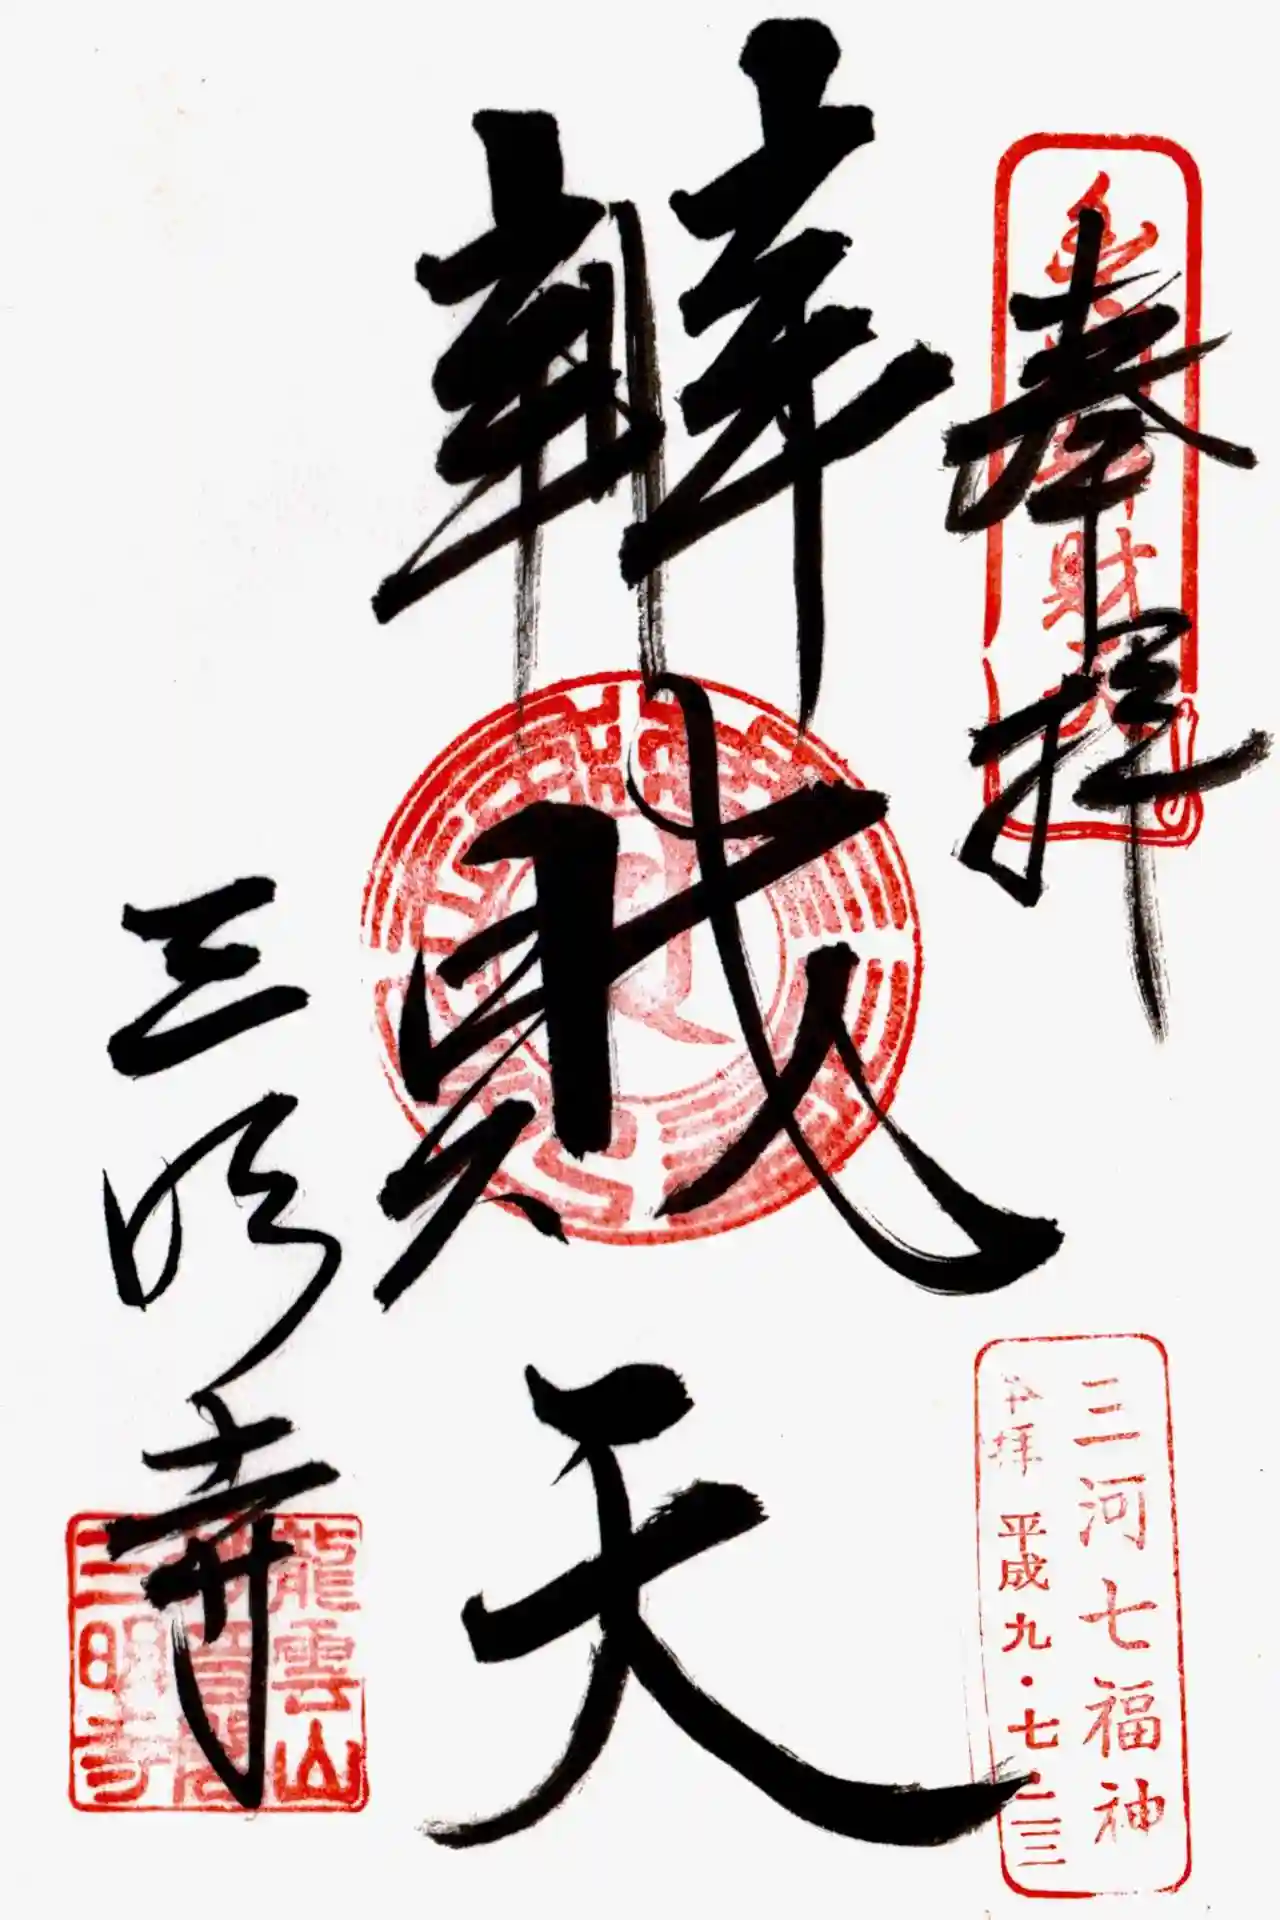 奉拝
辨財天
三明寺
三河七福神
参拝 平成九・七・二三
龍雲山
三明寺